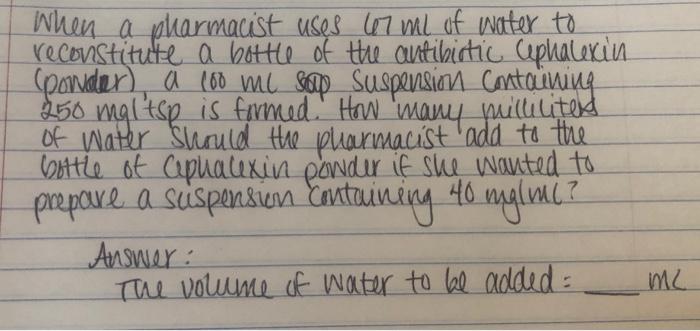 When a pharmacist uses 67 ml of water to
reconstitute a bottle of the antibiotic Cephalexin
(powder), a 100 mL suspension containing
250 mg/tsp is formed. How many milliliters
of water should the pharmacist add to the
bottle of Cephalexin powder if she wanted to
prepare a suspension containing 40 mg/mL?
Answer:
The volume of water to be added = ___ mL